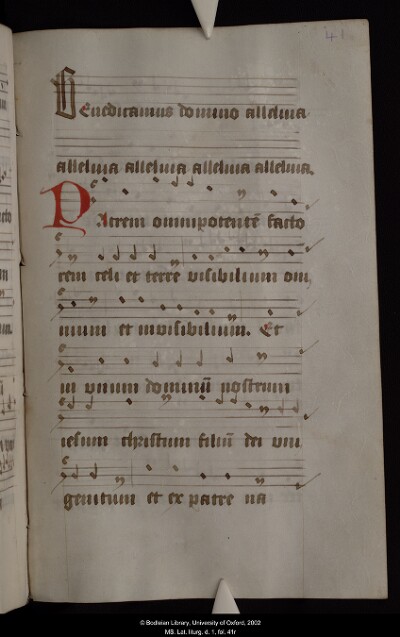 41
Benedicamus domino alleluia
alleluia alleluia alleluia alleluia.
Patrem omnipotentē facto
rem celi et terre visibilium om,
nium et invisibilium. Et
in vnum dominū nostrum
iesum christum filiū dei vni
genitum et ex patre na
© Bodleian Library, University of Oxford, 2002
MS. Lat. liturg. d. 1, fol. 41r